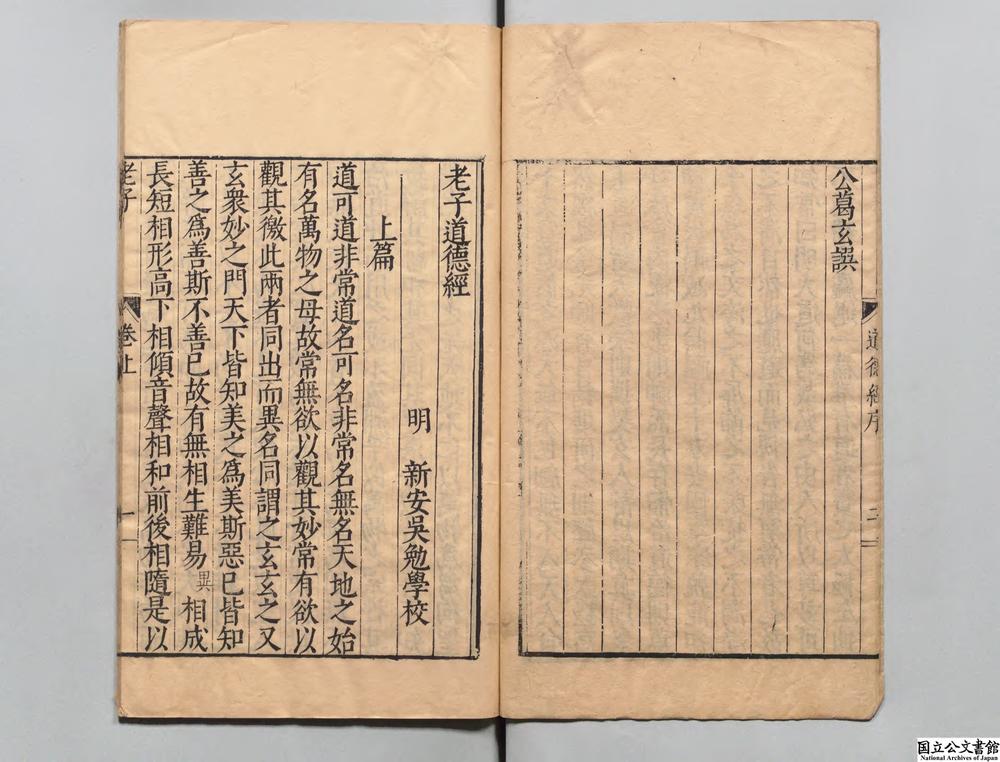 公葛玄譔
道德經序
二
老子道德經
明 新安吳勉學校
上篇
道可道非常道名可名非常名無名天地之始
有名萬物之母故常無欲以觀其妙常有欲以
觀其徼此兩者同出而異名同謂之玄玄之又
玄衆妙之門天下皆知美之爲美斯惡已皆知
善之爲善斯不善已故有無相生難易異相成
長短相形高下相傾音聲相和前後相隨是以
老子
卷上
一
国立公文書館
National Archives of Japan